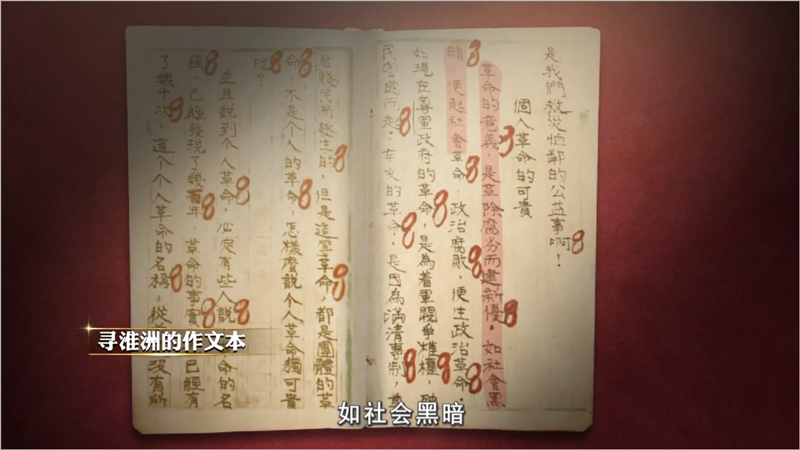 是我們救災恤鄰的公益事啊！
個人革命的可貴
革命的意義，是革除腐劣而建新優。如社會黑
暗，便起社會革命，政治腐敗，便生政治革命，
如現在軍政府的革命，是為着軍閥爭權，
民而起。辛亥的革命，是因為滿清專制，
而發生的，但是這革命，都是團體的革
命，不是个人的革命，怎樣麼說个人革命獨可貴
呢？
並且說到个人革命，必定有些人說，命的名
已經發現了幾百年，革命的事實，已經有
了幾十次，這个个人革命的名稱，從沒有所
寻淮洲的作文本
如社会黑暗